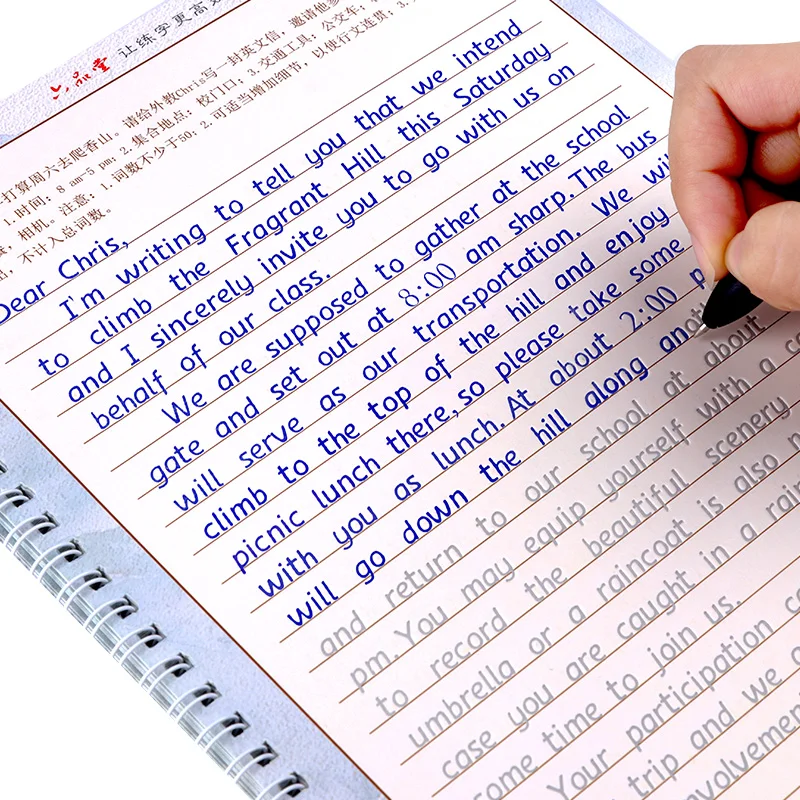 六品堂 让练字更高
打算周六去爬香山。请给外教Chris写一封英文信，邀请他
1.时间：8 am-5 pm；2.集合地点：校门口；3.交通工具：公交车；
相机。注意：1.词数不少于50；2.可适当增加细节，以使行文连贯；3.
不计入总词数。
Dear Chris,
I'm writing to tell you that we intend
to climb the Fragrant Hill this Saturday
and I sincerely invite you to go with us on
behalf of our class.
We are supposed to gather at the school
gate and set out at 8:00 am sharp. The bus
will serve as our transportation. We
climb to the top of the hill and enjoy
picnic lunch there, so please take some
with you as lunch. At about 2:00 p
will go down the hill along
and return to our school at about
pm. You may equip yourself with a
to record the beautiful scenery
umbrella or a raincoat is also
case you are caught in a
some time to join us.
Your participation
trip and we